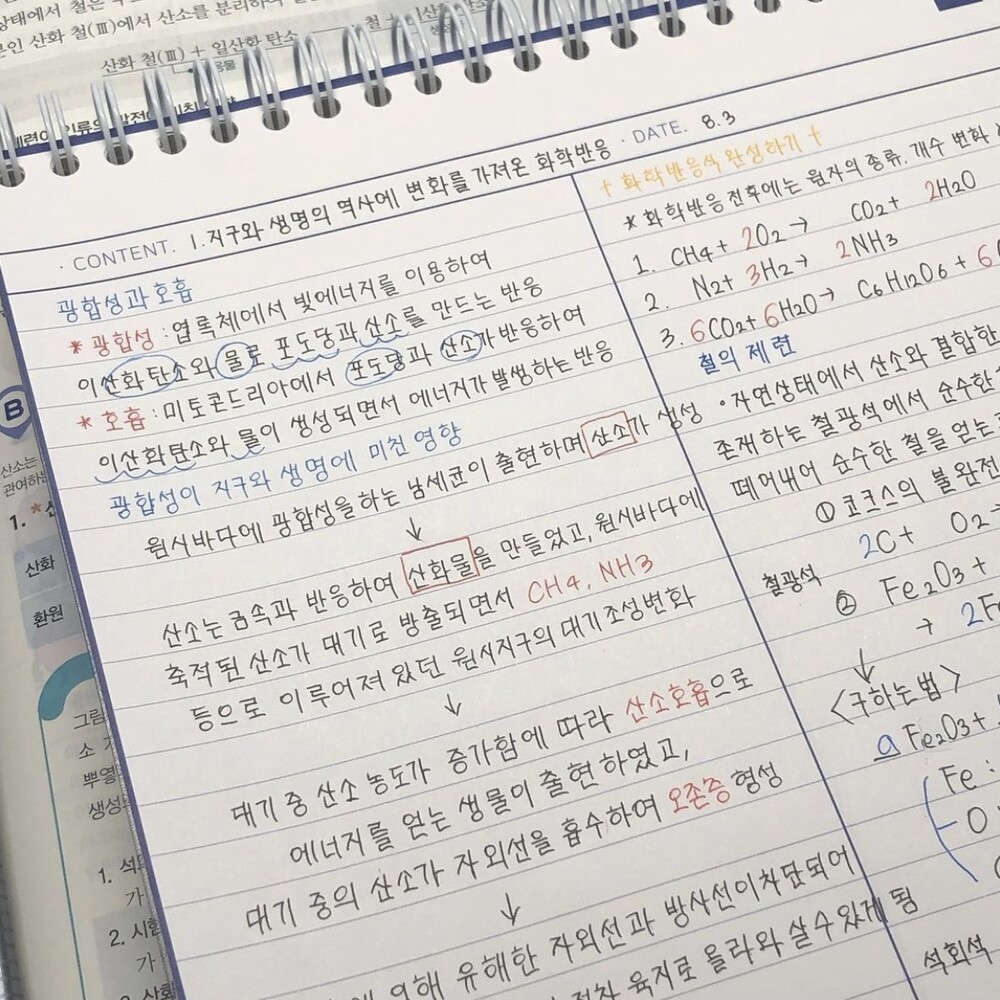 산화 철(Ⅲ)에서 산소를 분리하
산화 철(Ⅲ) + 일산화 탄소
철 +
CONTENT. 1. 지구와 생명의 역사에 변화를 가져온 화학반응 · DATE. 8.3
광합성과 호흡
* 광합성 : 엽록체에서 빛에너지를 이용하여
이산화탄소와 물로 포도당과 산소를 만드는 반응
* 호흡 : 미토콘드리아에서 포도당과 산소가 반응하여
이산화탄소와 물이 생성되면서 에너지가 발생하는 반응
광합성이 지구와 생명에 미친 영향
원시바다에 광합성을 하는 남세균이 출현하며 산소가 생성
↓
산소는 금속과 반응하여 산화물을 만들었고, 원시바다에
축적된 산소가 대기로 방출되면서 CH4, NH3
등으로 이루어져 있던 원시지구의 대기조성변화
↓
대기 중 산소 농도가 증가함에 따라 산소호흡으로
에너지를 얻는 생물이 출현하였고,
대기 중의 산소가 자외선을 흡수하여 오존층 형성
↓
의해 유해한 자외선과 방사선이 차단되어
점차 육지로 올라와 살 수 있게 됨
+ 화학반응식 완성하기 +
* 화학반응 전후에는 원자의 종류, 개수 변화
1. CH4 + 2O2 → CO2 + 2H2O
2. N2 + 3H2 → 2NH3
3. 6CO2 + 6H2O → C6H12O6 + 6
철의 제련
· 자연상태에서 산소와 결합한
존재하는 철광석에서 순수한
떼어내어 순수한 철을 얻는
① 코크스의 불완전
2C + O2
철광석
② Fe2O3 +
→ 2F
↓
<구하는 법>
a Fe2O3 +
Fe :
O
석회석
B
산소는
관여하는
1. *
산화
환원
그림
소
뿌옇
생성
1. 석
가
2. 시험
가
산화